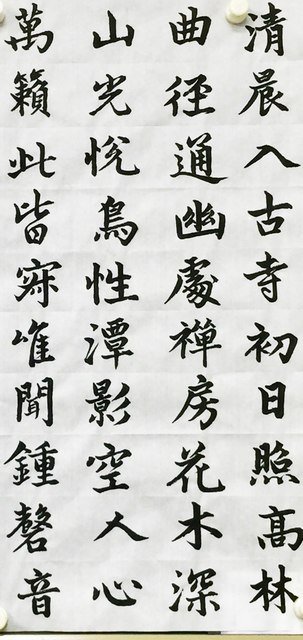 清晨入古寺初日照高林
曲徑通幽處禪房花木深
山光悅鳥性潭影空人心
萬籟此皆寂唯聞鍾磬音